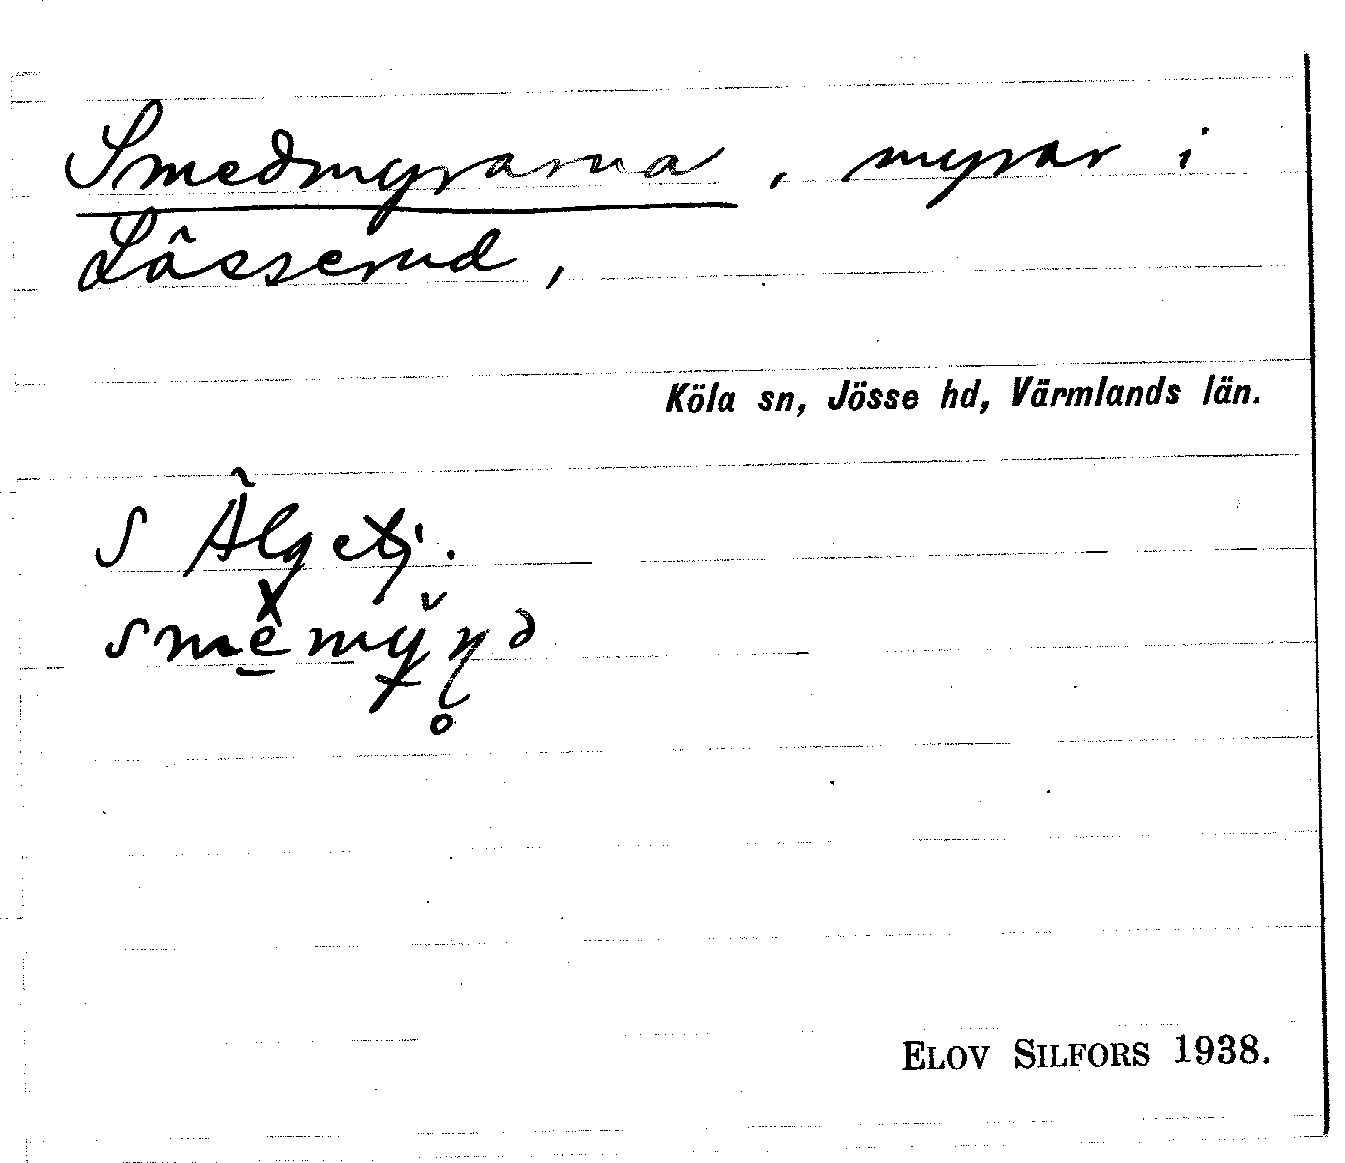 Smedmyrarna, myrar i
Lässerud,
Köla sn, Jösse hd, Värmlands län.
S Älgetj.
ELOV SILFORS 1938.